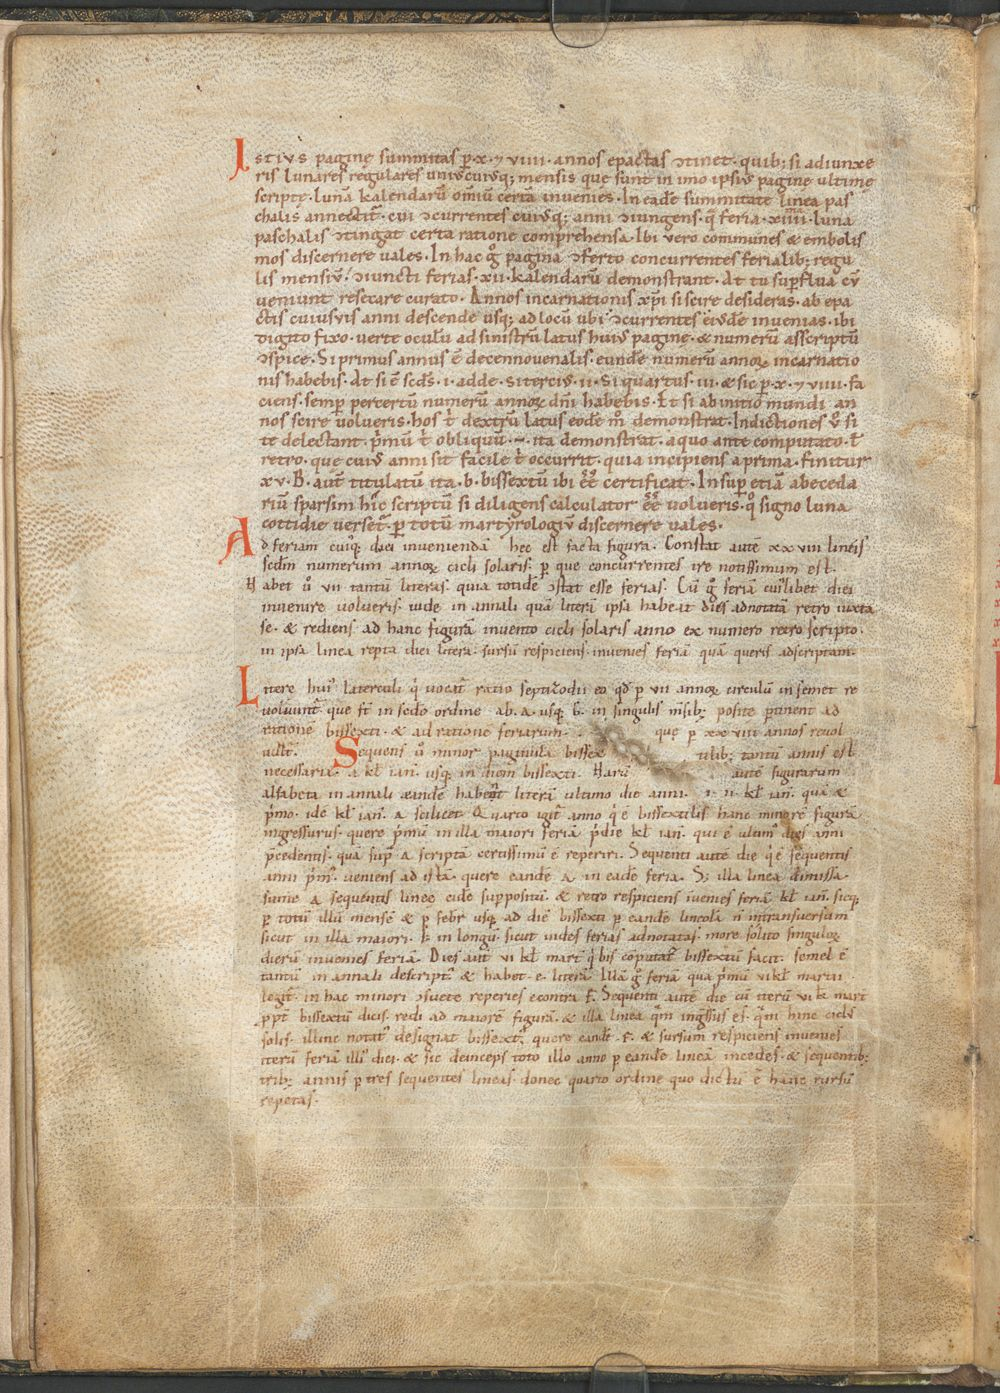 Istius pagine summitas p̄·x·⁊ viiii·annos epactas ɔtinet·quib; si adiunxe
ris lunares regulares univscuivsq; mensis que sunt in imo ipsivs pagine ultime
scripte·lunā kalendarū omīuᷣ certā invenies·In eadē summitate linea pas
chalis annectitᷣ·cui ɔcurrentes cuivsq; anni ɔiungens·q̄ feria·xiiii·luna
paschalis ɔtingat certa ratione comprehensa·Ibi vero communes & embolis
mos discernere vales·In hac g̊ pagina ɔferto concurrentes ferialib; regu
lis mensiū·ɔiuncti ferias·xii·kalendarū demonstrant·At tu sup̄flua cū
veniunt resecare curato·Annos incarnationis xp̄i si scire desideras·ab epa
ctis cuiusvis anni descende usq; ad locū ubi ɔcurrentes eivsdē invenias·ibi
digito fixo·verte oculū ad sinistrū latus huivs pagine·& numerū asscriptū
ɔspice·Si primus annus ē decennovenalis·eundē numerū annoꝝ incarnatio
nis habebis·At si ē scds̄·i·adde·Si tercivs·ii·Si quartus·iii·& sic p̄·x·⁊ viiii·fa
ciens·semp̄ percertū numerū annoꝝ dn̄i habebis·Et si ab initio mundi·an
nos scire volueris·hos ť dextrū latus eodē m̊ demonstrat·Indictiones v̊ si
te delectant·p̄mū ť obliquū·~·ita demonstrat·a quo ante computato·ť
retro·que cuivs anni sit facile ť occurrit·quia incipiens a prima·finitur
xv·B·autᷣ titulatū ita·b·bissextū ibi eē certificat·Insup̄ etiā abeceda
riū sparsim hic scriptū si diligens calculator eē volueris·q̊ signo luna
cottidie versetᷣ·p̄ totū martyrologiū discernere vales·
Ad feriam cuiq; diei inveniendā hec est facta figura·Constat autē xxviii lineis
scdm̄ numerum annoꝝ cicli solaris·p̄ que concurrentes ire notissimum est·
Habet v̊ vii tantū literas·quia totidē ɔstat esse ferias·Cū g̊ feriā cuiᷤlibet diei
invenire volueris·vide in annali quā literā ipsa habeat dies adnotatā retro iuxta
se·& rediens ad hanc figurā invento cicli solaris anno ex numero retro scripto·
in ipsa linea rep̄ta diei litera·sursū respiciens·invenies feriā quā queris adscriptam·
Litere huiᷤ laterculi q̇ vocatᷣ ratio septizodii eo qd̄ p̄ vii annoꝝ circulū in semet re
volvuntᷣ que st̄ in scdo ordine ab·a·usq; b·in singulis m̄sib; posite p̄tinent ad
rationē bissexti·& ad rationē feriarum· que p̄ xxviii annos revol
Sequens v̊ minor paginula bissex tilib; tantū annis est
necessaria·a kl̄ ian̄·usq; in diem bissexti·Harū autē figurarum
alfabeta in annali eandē habent literā ultimo die anni·i·ii·kl̄ ian̄·quā &
p̄mo·idē kl̄ ian̄·a scilicet Quarto igitᷣ anno q̇ ē bissextilis hanc minorē figurā
ingressurus·quere p̄mū in illa maiori feriā p̄die kl̄ ian̄·qui ē ultimᷤ dies anni
p̄cedentis·quā sup̄ a scriptā certissimū ē reperiri·Sequenti autē die q̇ ē sequentis
anni p̄mᷤ·veniens ad istā·quere eandē a in eadē feria·S; illa linea dimissa
sume a sequentis linee eidē suppositū·& retro respiciens invenies feriā kl̄ ian̄·sicq;
p̄ totū illū mensē & p̄ febr̄ usq; ad diē bissexti p̄ eandē lineolā n̄ intransversum
sicut in illa maiori· in longū·sicut vides ferias adnotatas·more solito singuloꝝ
dierū invenies feriā·Dies autᷣ vi kl̄ mart̄ q̇ bis cōputatᷤ bissextū facit·semel ē
tantū in annali descriptᷤ & habet·e·literā·Illā g̊ feriā qua p̄mū vi kl̄ martii
legitᷣ·in hac minori ɔsuete reperies econtra f·Sequenti autē die cū iterū vi kl̄ mart̄
p̄pt̄ bissextū dicis·redi ad maiorē figurā·& illa linea q̄m ingressus es·q̄m hinc ciclᷤ
solis·illinc notatᷤ designat bissextᷤ·quere eandē·f·& sursum respiciens invenies
iterū feriā illiᷤ diei·& sic deinceps toto illo anno p̄ eandē lineā incedes·& sequentib;
trib; annis p̄ tres sequentes lineas·donec quarto ordine quo dictū ē hanc rursū
repetas·